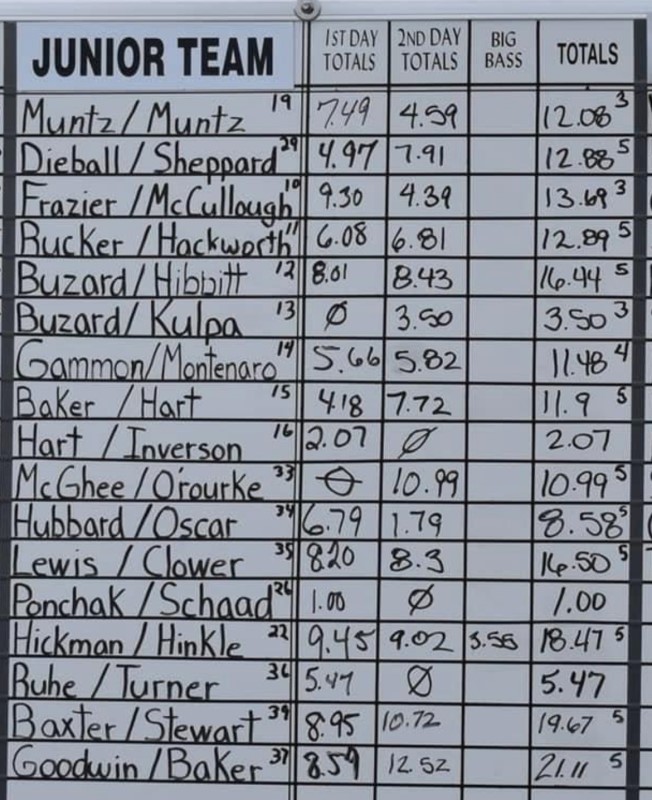 JUNIOR TEAM 1ST DAY TOTALS 2ND DAY TOTALS BIG BASS TOTALS
Muntz / Muntz 19 7.49 4.59 12.08 3
Dieball / Sheppard 29 4.97 7.91 12.88 5
Frazier / McCullough 10 9.30 4.39 13.69 3
Rucker / Hackworth 11 6.08 6.81 12.89 5
Buzard / Hibbitt 12 8.01 8.43 16.44 5
Buzard / Kulpa 13 Ø 3.50 3.50 3
Gammon / Montenaro 14 5.66 5.82 11.48 4
Baker / Hart 15 4.18 7.72 11.9 5
Hart / Inverson 16 2.07 Ø 2.07
McGhee / O'rourke 33 Ø 10.99 10.99 5
Hubbard / Oscar 34 6.79 1.79 8.58 5
Lewis / Clower 35 8.20 8.3 16.50 5
Ponchak / Schaad 26 1.00 Ø 1.00
Hickman / Hinkle 22 9.45 9.02 18.47 5
Ruhe / Turner 36 5.47 Ø 5.47
Baxter / Stewart 39 8.95 10.72 19.67 5
Goodwin / Baker 37 8.59 12.52 21.11 5